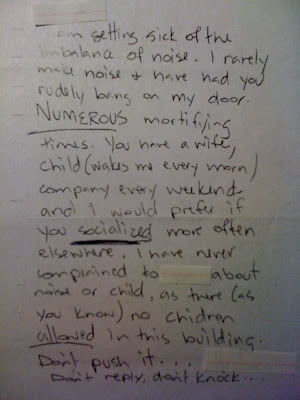 I am getting sick of the
imbalance of noise. I rarely
make noise & have had you
rudely bang on my door.
NUMEROUS mortifying
times. You have a wife,
child (wakes me every morn)
company every weekend
and I would prefer if
you socialized more often
elsewhere. I have never
complained to about
noise or child, as there (as
you know) no chidren
allowed in this building.
Don't push it...
Don't reply, don't knock...